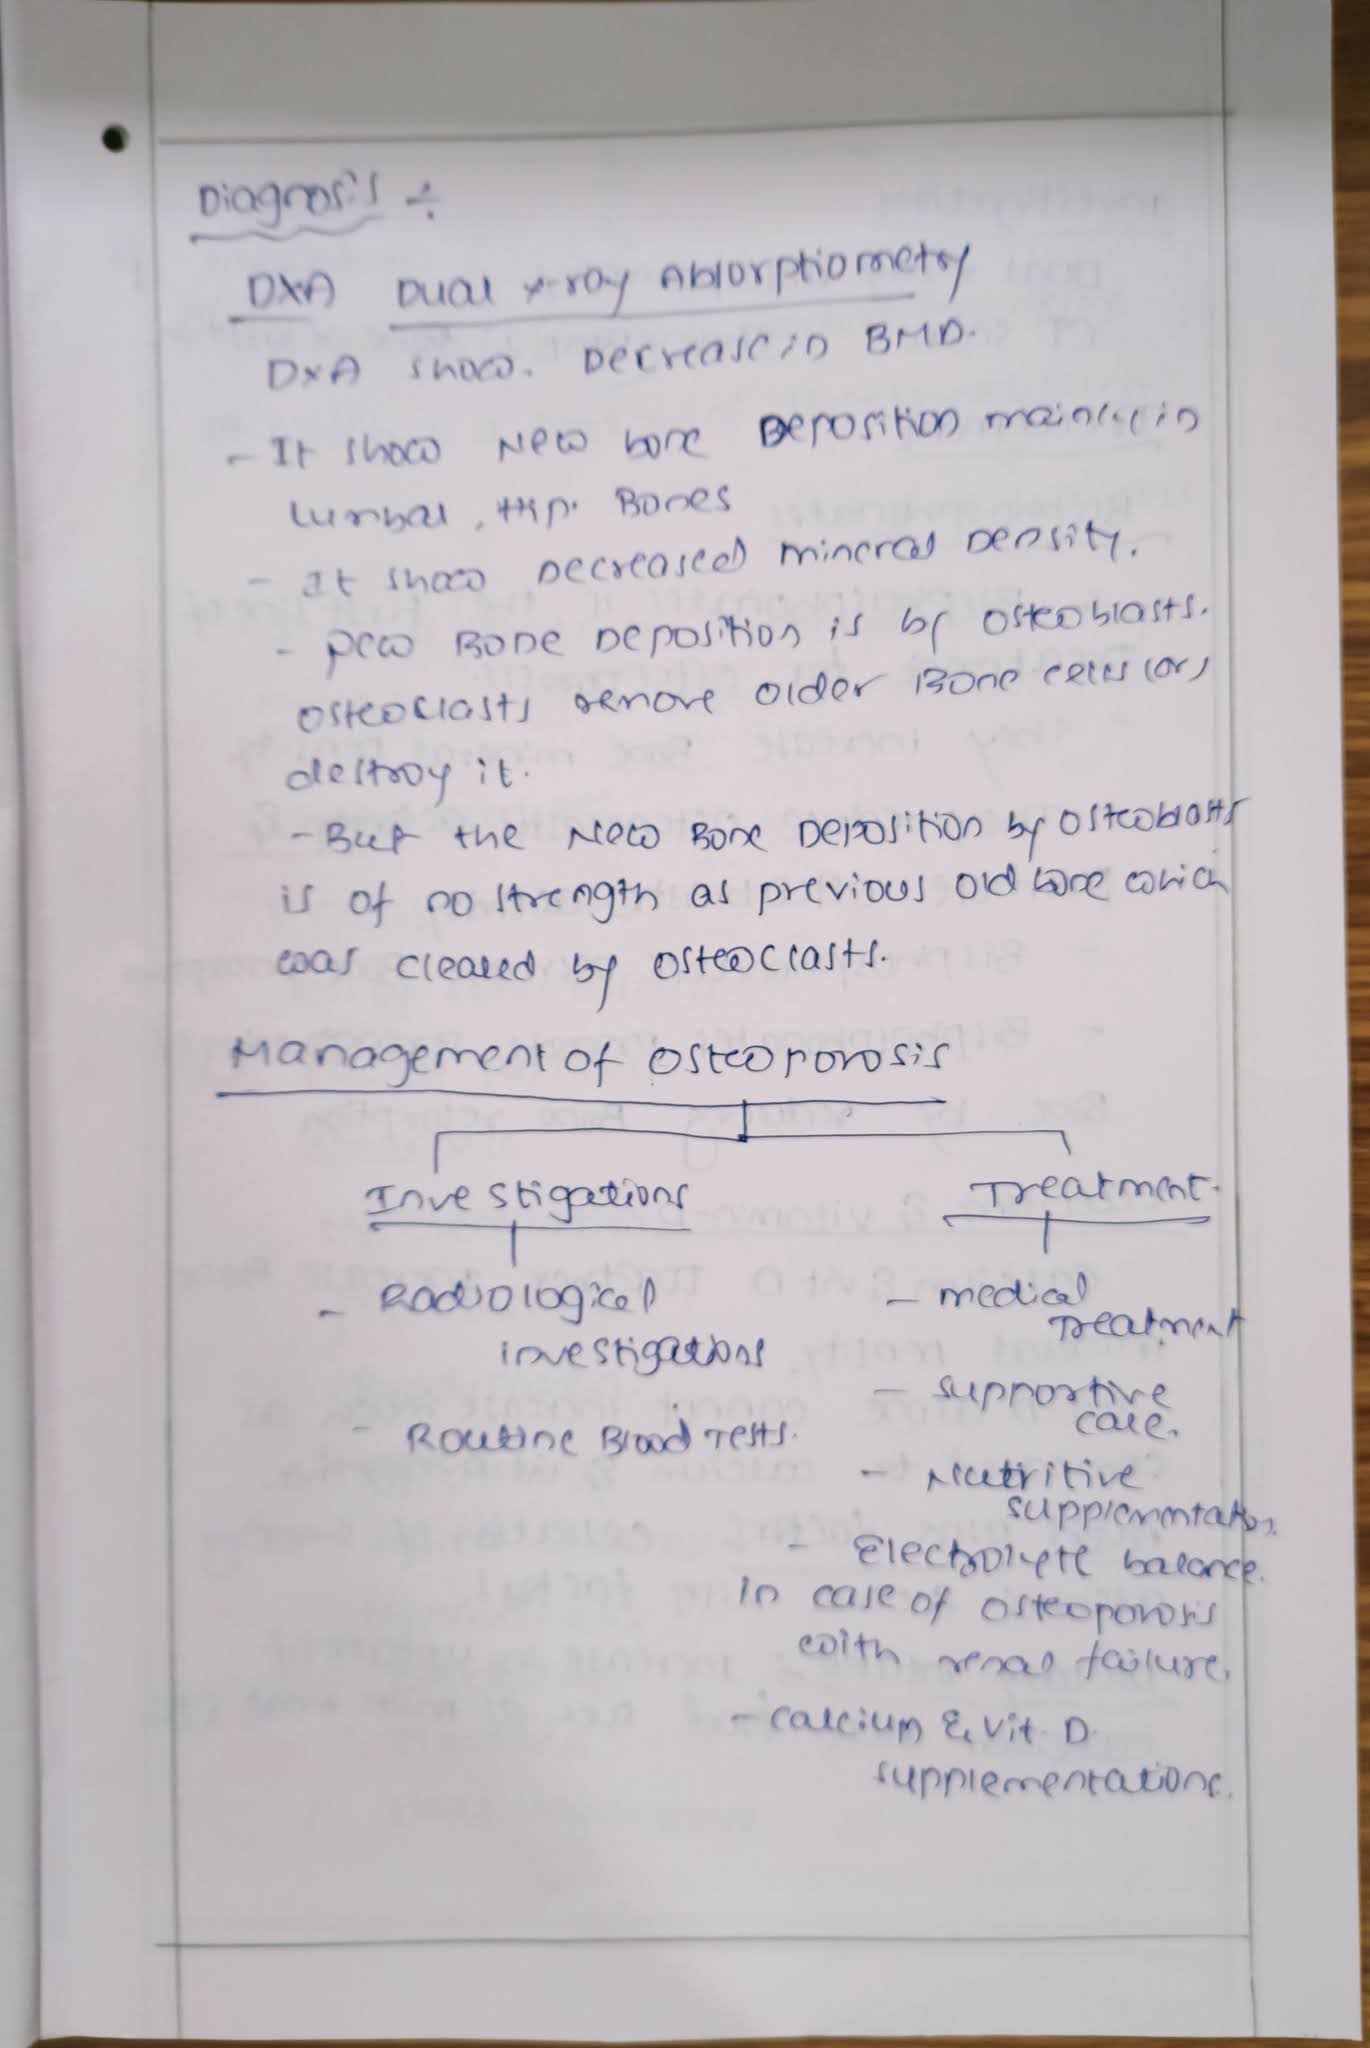 Diagnosis ÷
DXA Dual x-ray Absorptiometry
DXA show. Decrease in BMD.
- It show New bone Deposition mainly in
Lumbar, Hip. Bones
- It show Decreased mineral Density.
- New Bone Deposition is by osteoblasts.
osteoclasts remove older Bone cells (or)
destroy it.
- But the New Bone Deposition by osteoblasts
is of no strength as previous old bone which
was cleared by osteoclasts.
Management of osteoporosis
Investigations Treatment.
- Radiological - medical
investigations Treatment
- Routine Blood Tests. - supportive
care.
- Nutritive
supplementation.
- Electrolyte balance.
in case of osteoporosis
with renal failure.
- calcium & vit. D.
supplementations.